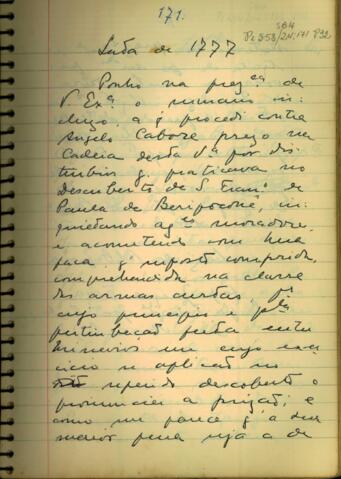 171.
SB4
Pc 558/24:171 P32
de 1777
Ponho na prez.ça de
V Ex.ª o sumario in-
cluzo, a q procedi contra
Angelo Cabore prezo na
Cadeia desta V.ª por dis-
turbios q. praticava no
Descuberto de S. Fran.co de
Paula de Beripoconé, in-
quietando aq.es moradores,
e acometendo com hua
faca, q' suposto comprida,
comprehendida na classe
das armas curtas, por
cujo principio e pela
perturbação feita entre
Mineiros em cujo exer-
cicio se aplicão no
referido descoberto o
pronunciei a prizão; e
como me parece q' a sua
maior pena seja a de